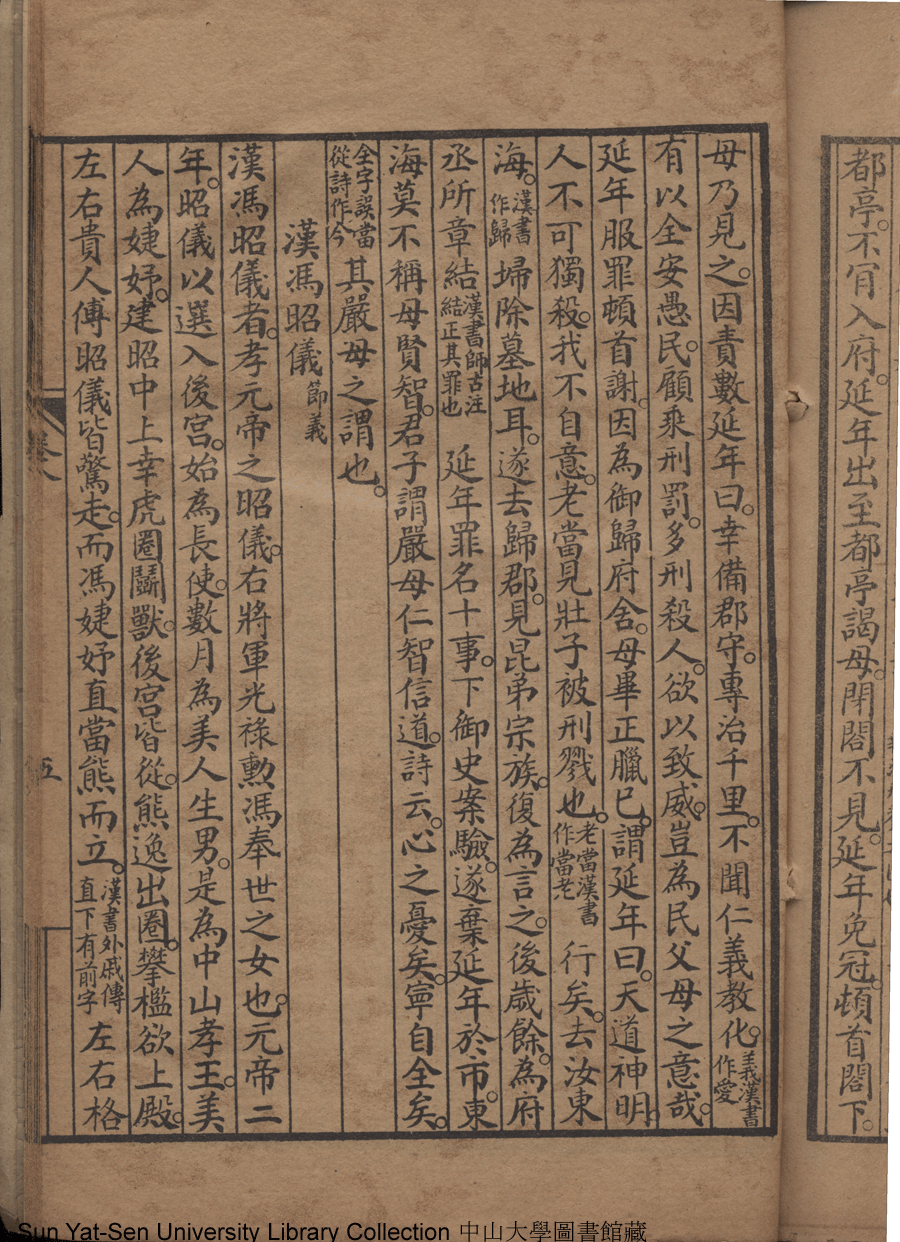 都亭。不肎入府。延年出至都亭謁母。母閉閤不見。延年免冠。頓首閤下。
母乃見之。因責數延年曰。幸備郡守。專治千里。不聞仁義教化。義漢書作愛
有以全安愚民。顧乘刑罰。多刑殺人。欲以致威。豈為民父母之意哉。
延年服罪頓首謝。因為御歸府舍。母畢正臘巳。謂延年曰。天道神明。
人不可獨殺。我不自意。老當見壯子被刑戮也。老當漢書作當老行矣。去汝東
海。漢書作歸埽除墓地耳。遂去歸郡。見昆弟宗族。復為言之。後歲餘。為府
丞所章結漢書師古注結正其罪也延年罪名十事。下御史案驗。遂棄延年於市。東
海莫不稱母賢智。君子謂嚴母仁智信道。詩云。心之憂矣。寧自全矣。
全字誤當從詩作今其嚴母之謂也。
漢馮昭儀節義
漢馮昭儀者。孝元帝之昭儀。右將軍光祿勳馮奉世之女也。元帝二
年。昭儀以選入後宮。始為長使。數月為美人生男。是為中山孝王。美
人為婕妤。建昭中上幸虎圈鬭獸。後宮皆從。熊逸出圈。攀檻欲上殿。
左右貴人傅昭儀皆驚走。而馮婕妤直當熊而立。漢書外戚傳直下有前字左右格
卷八
五
Sun Yat-Sen University Library Collection 中山大學圖書館藏